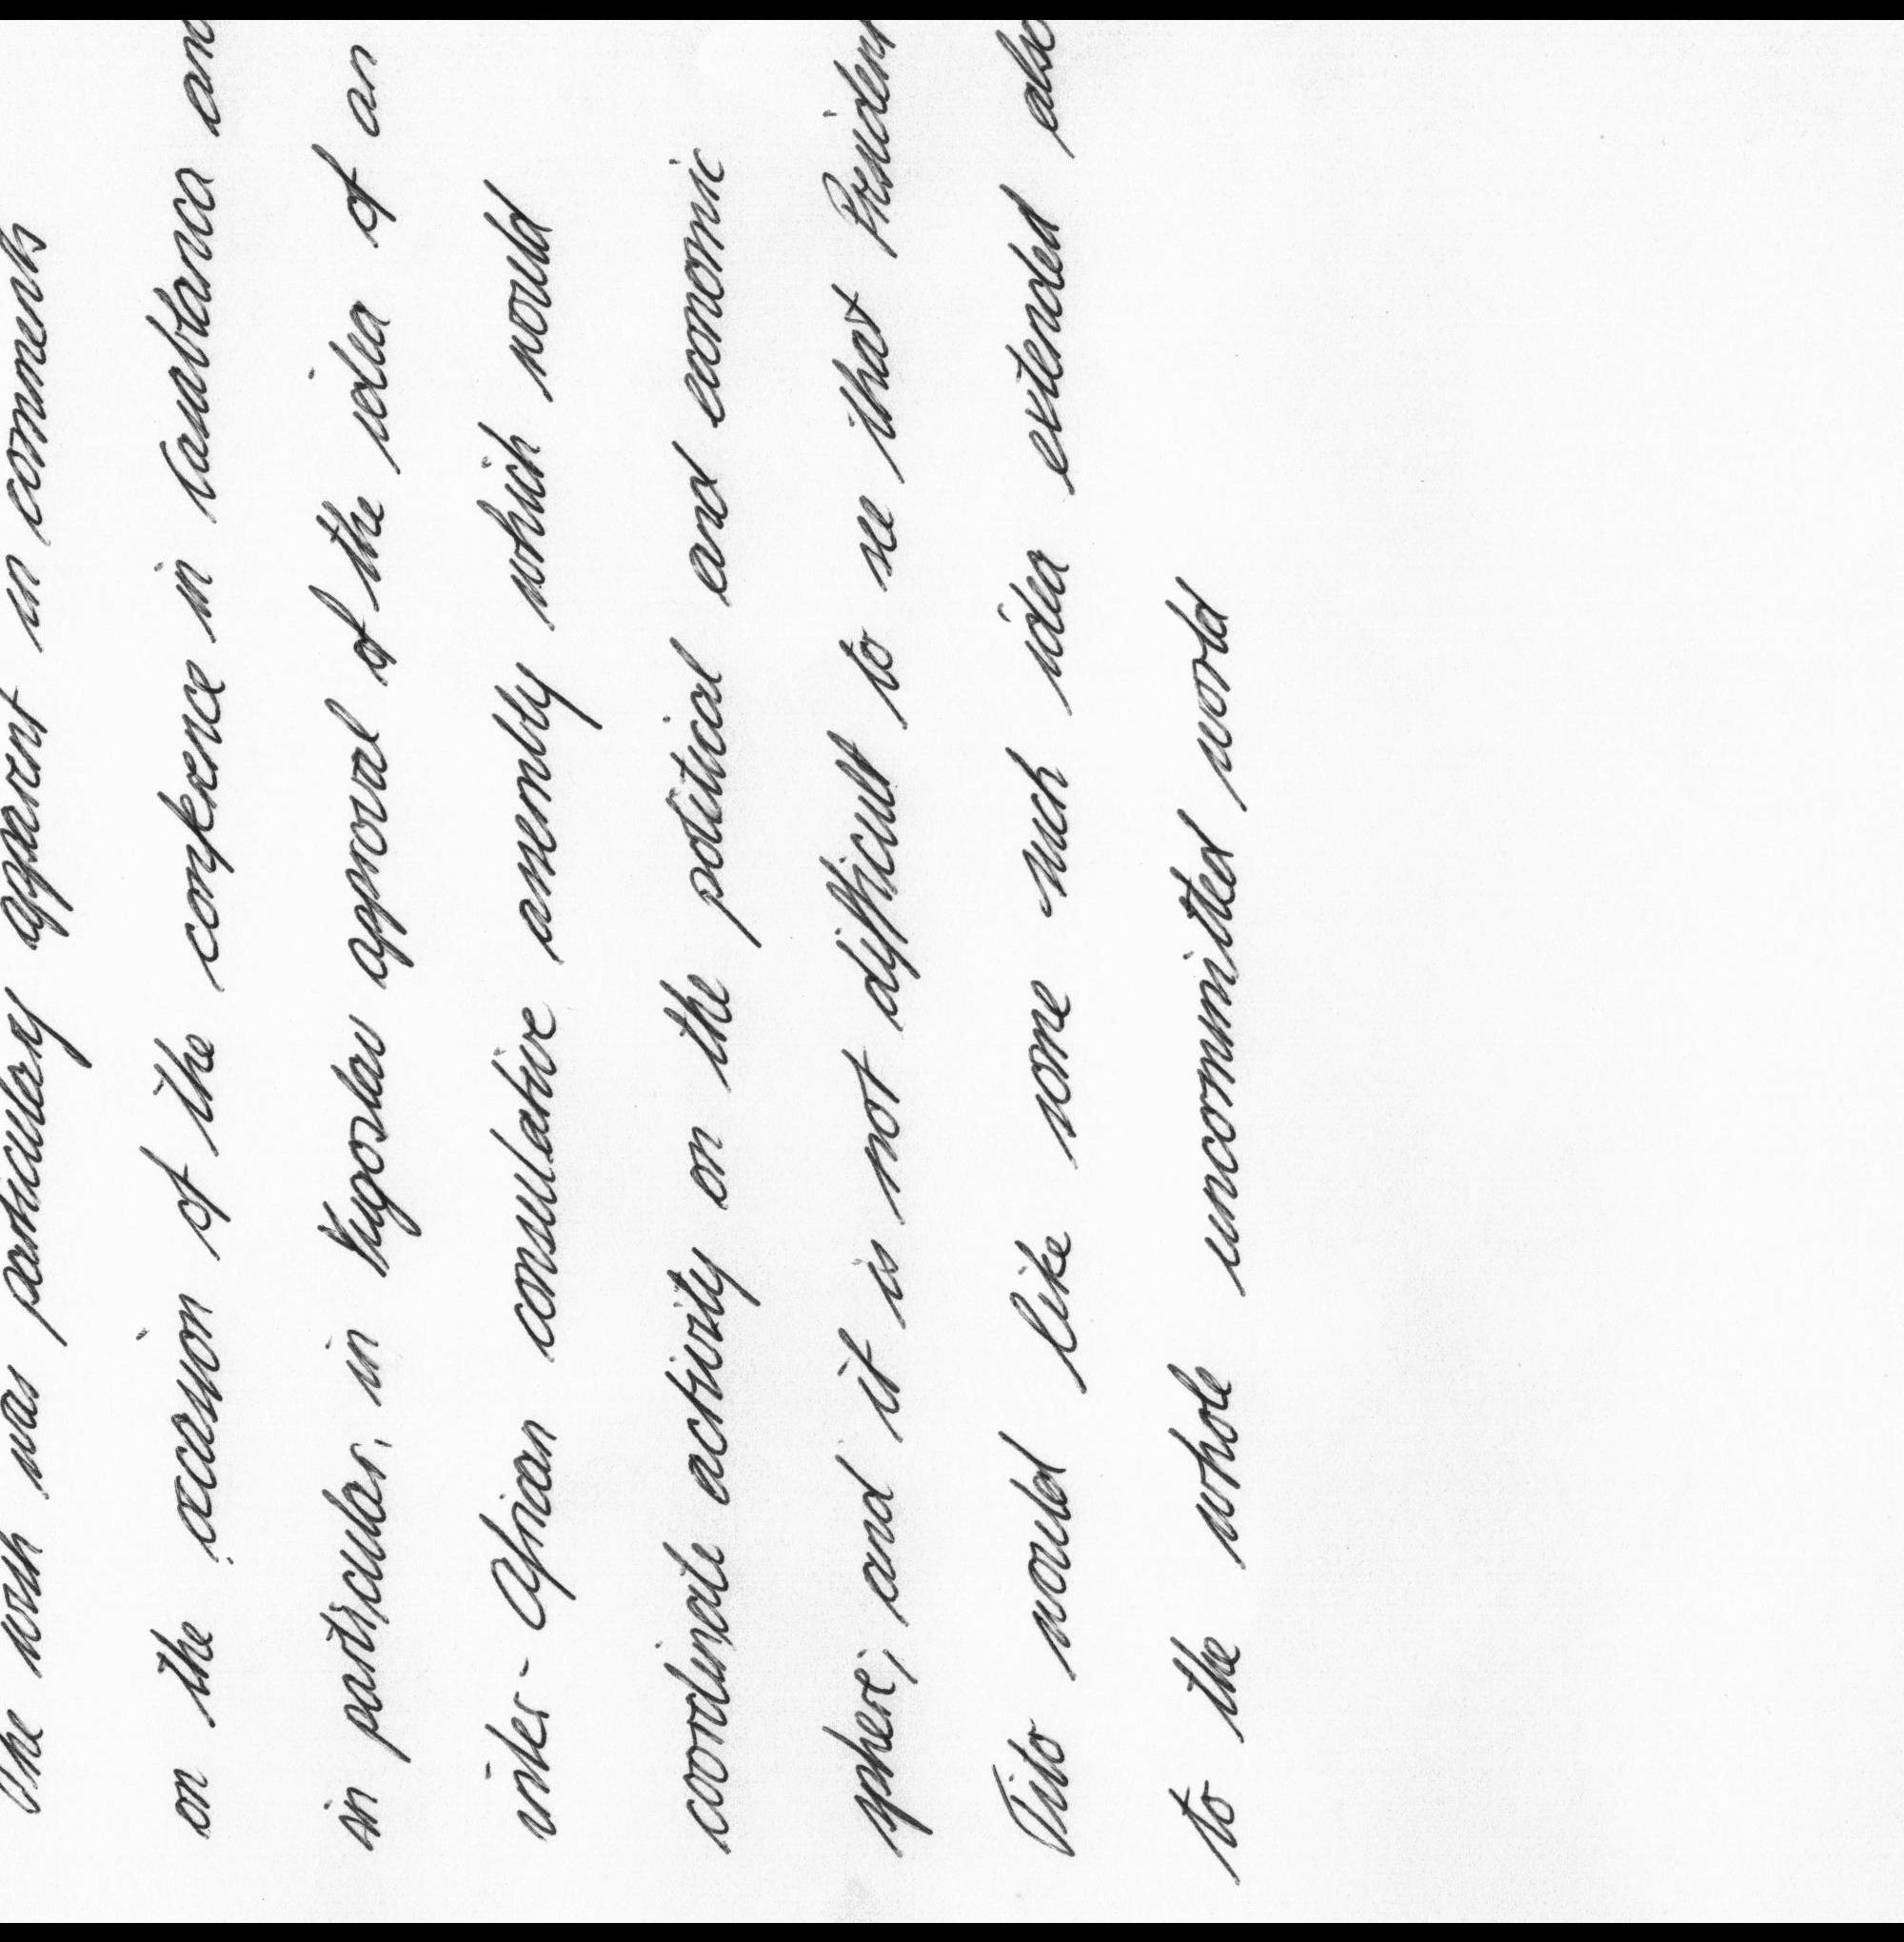 The wish was particulary apparent in comments
on the occasion of the conference in Casablanca and
in particular, in Yugoslav approval of the idea of an
inter- African consulative assembly which would
coordinate activity on the political and economic
sphere, and it is not difficult to see that President
Tito would like some such idea extended also
to the whole uncommitted world